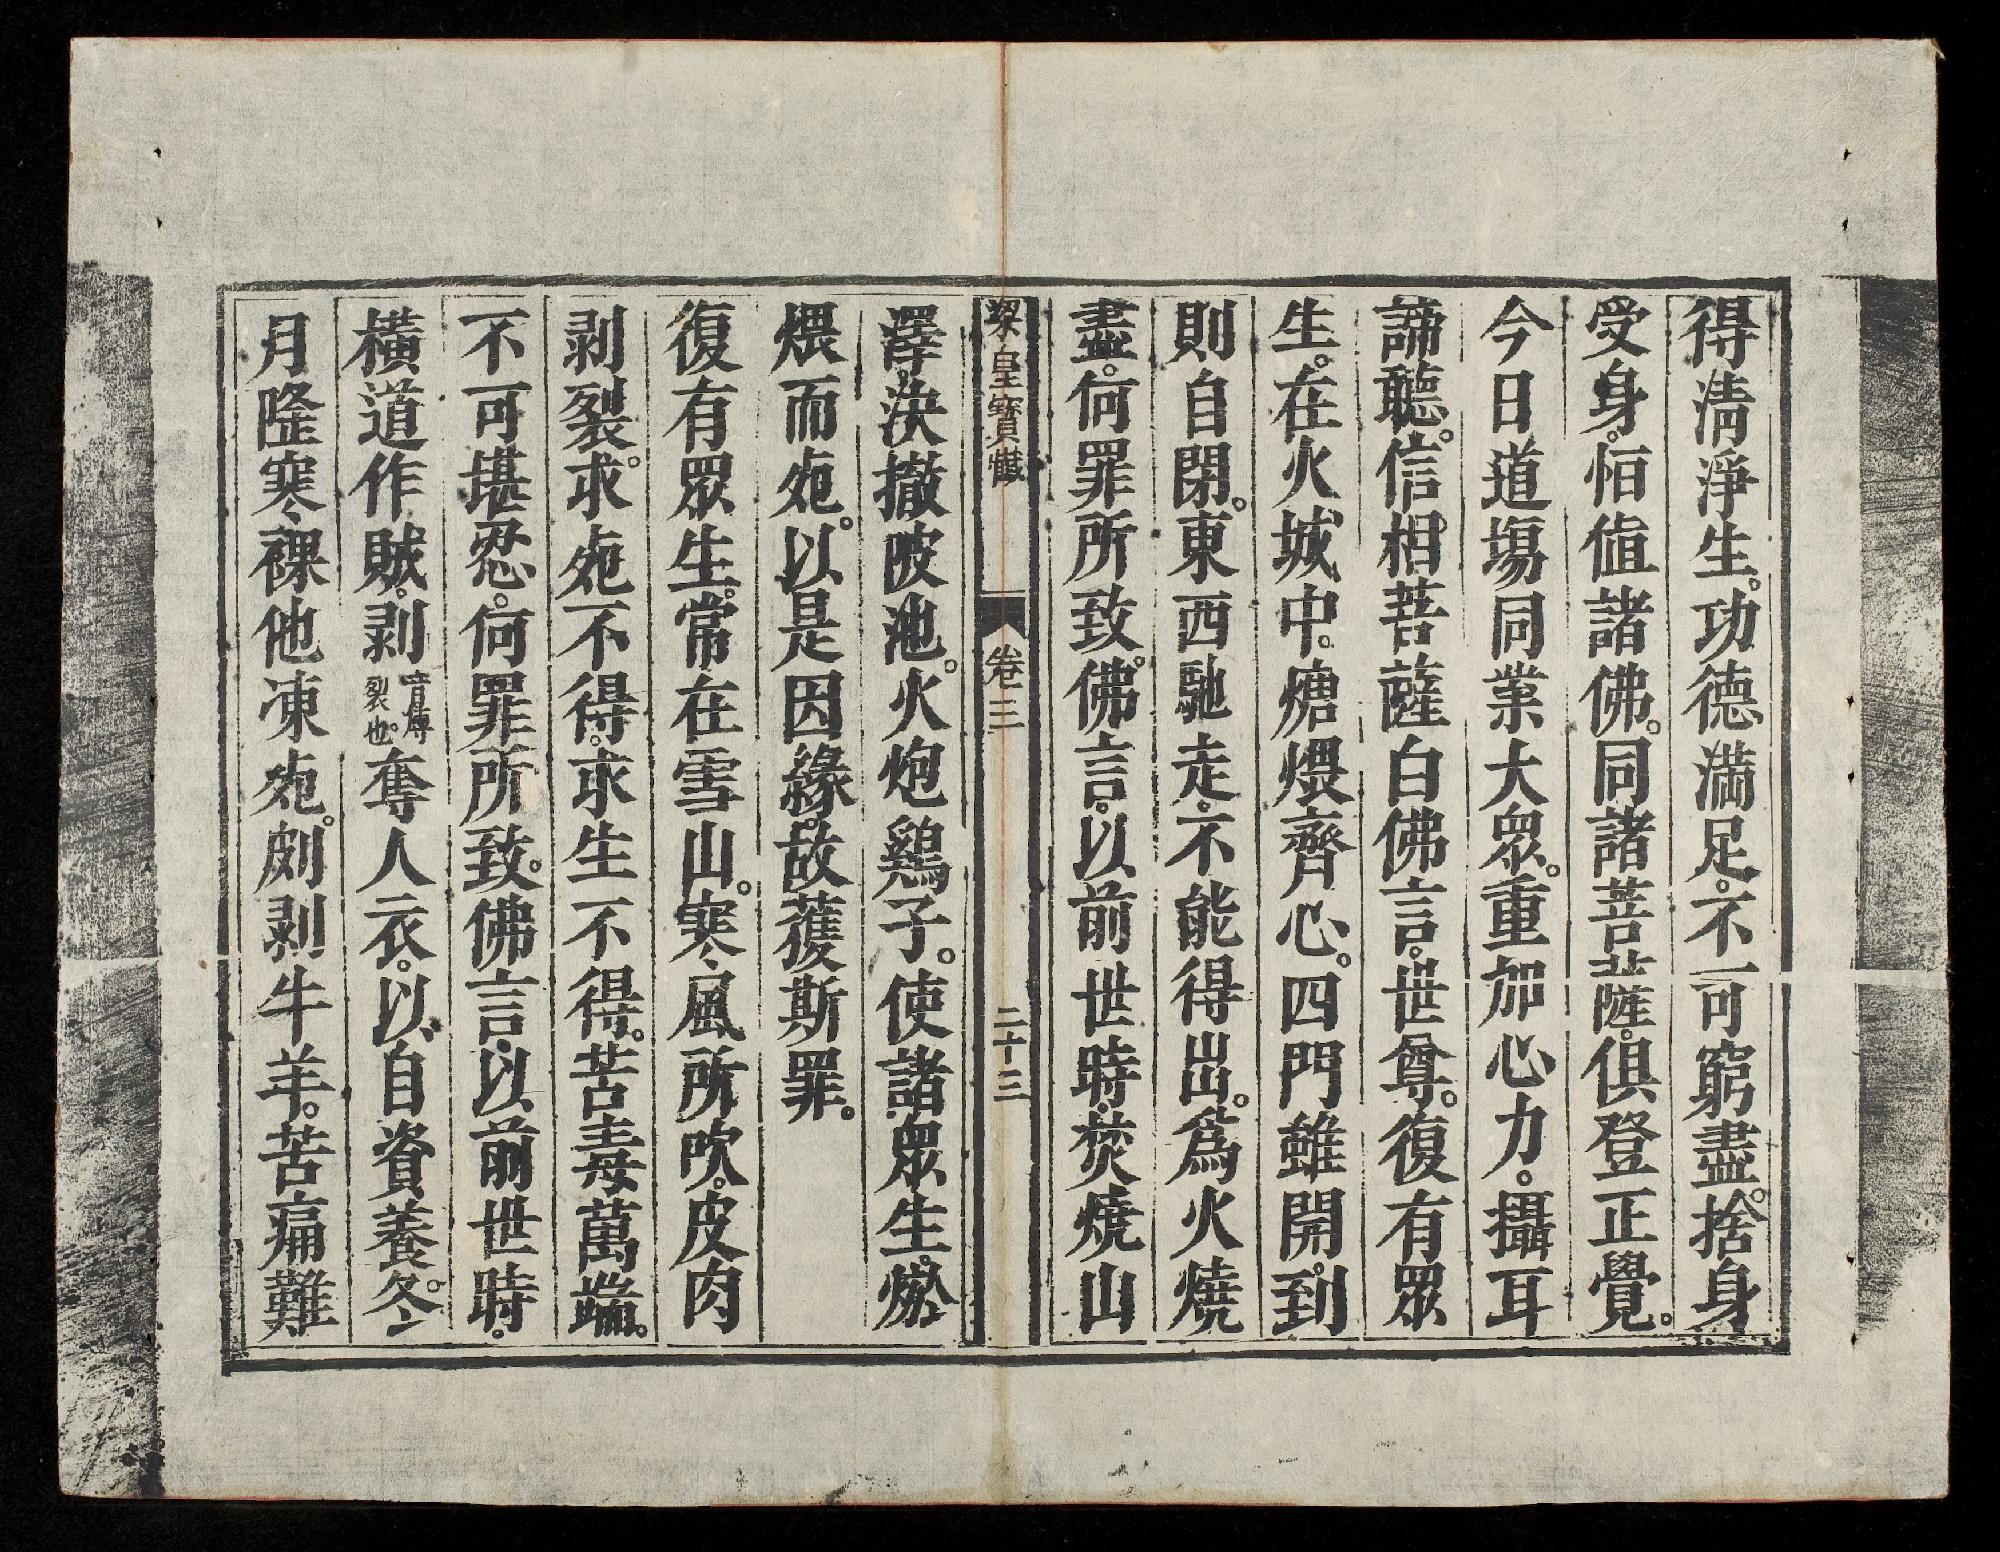 得清淨生。功德滿足。不可窮盡。捨身
受身。恒值諸佛。同諸菩薩。俱登正覺。
今日道場同業大眾。重加心力。攝耳
諦聽。信相菩薩白佛言。世尊。復有眾
生。在火城中。煻煨齊心。四門雖開。到
則自閉。東西馳走。不能得出。為火燒
盡。何罪所致。佛言。以前世時。焚燒山
梁皇寶懺 卷三 二十三
澤。決撤陂池。火炮鷄子。使諸眾生。燃
煨而死。以是因緣。故獲斯罪。
復有眾生。常在雪山。寒風所吹。皮肉
剥裂。求死不得。求生不得。苦毒萬端。
不可堪忍。何罪所致。佛言。以前世時。
橫道作賊。剥音博裂也。奪人衣。以自資養。冬
月隆寒。裸他凍死。剥牛羊。苦痛難